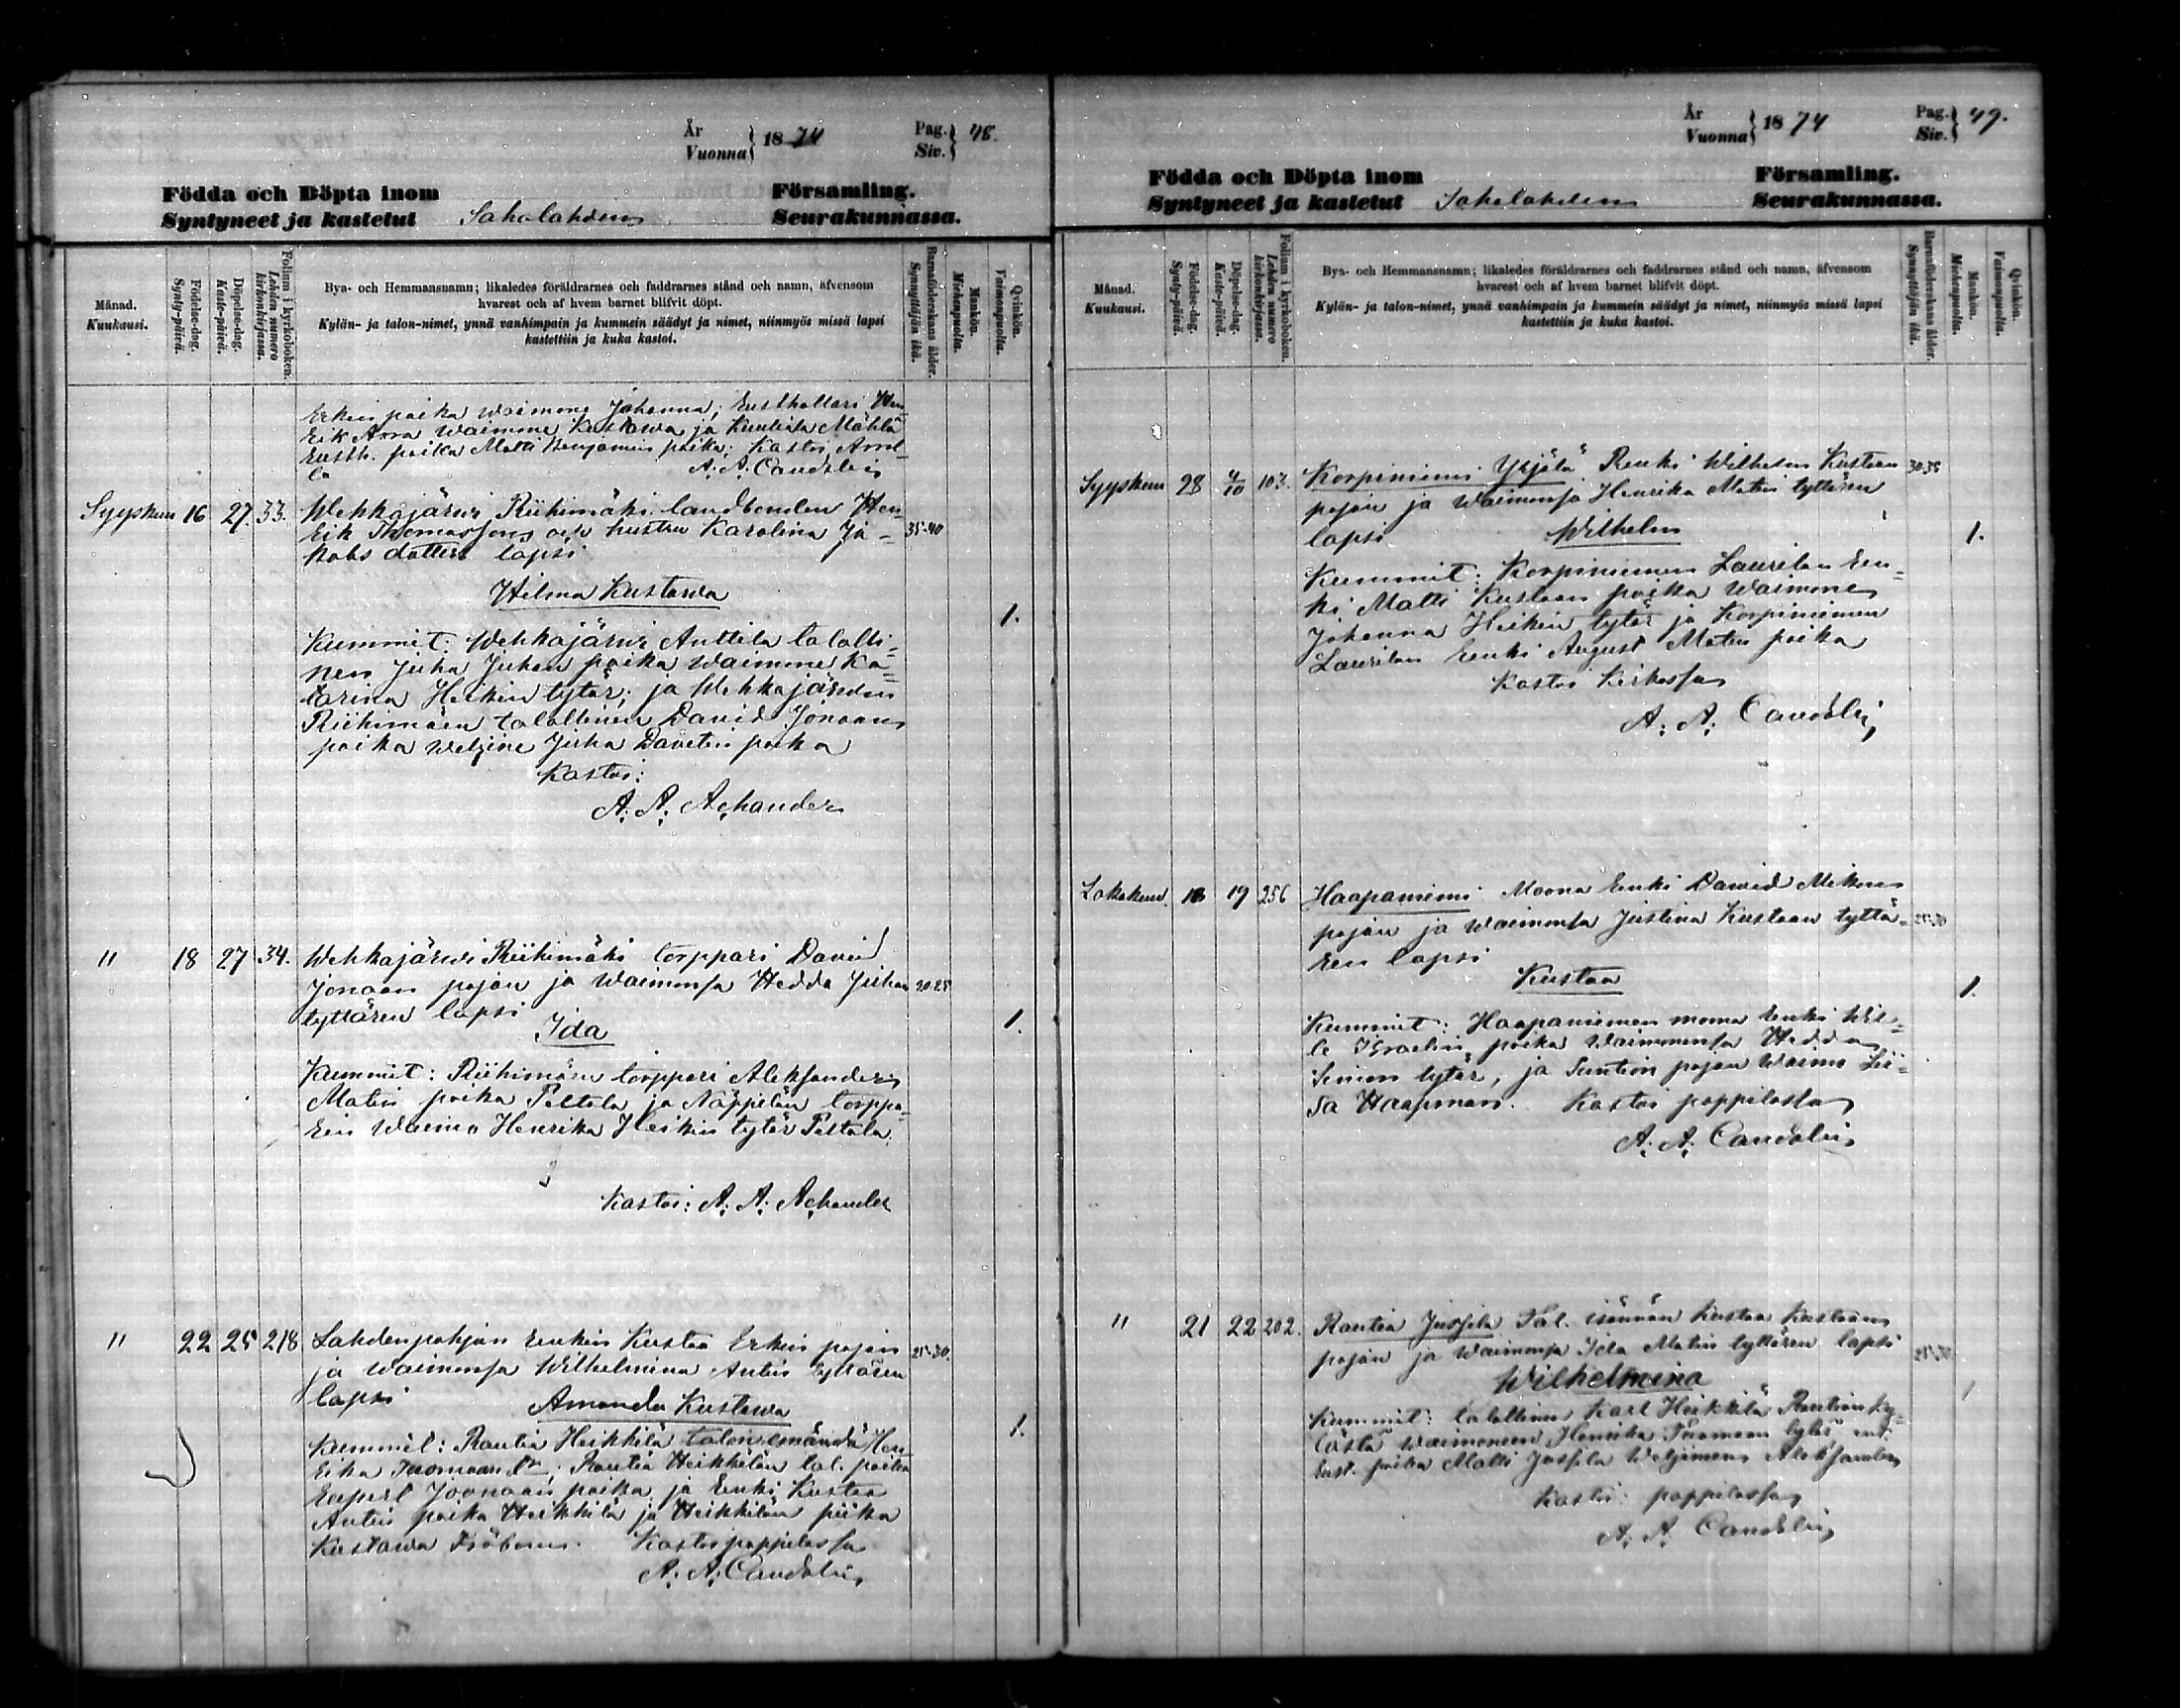 År
Vuonna } 18 74 Pag.
Siv. } 48.
Födda och Döpta inom Församling.
Syntyneet ja kastetut Sahalahden Seurakunnassa.
Månad.
Kuukausi.
Födelse-dag.
Synty-päivä.
Döpelse-dag.
Kaste-päivä.
Folium i kyrkoboken.
Lehden numero
kirkonkirjassa.
Bya- och Hemmansnamn; likaledes föräldrarnes och faddrarnes stånd och namn, äfvensom
hvarest och af hvem barnet blifvit döpt.
Kylän- ja talon-nimet, ynnä vanhimpain ja kummein säädyt ja nimet, niinmyös missä lapsi
kastettiin ja kuka kastoi.
Barnaföderskans ålder.
Synnyttäjän ikä.
Mankön.
Miehenpuolia.
Qvinkön.
Vaimonpuolia.
Erkin poika waimone Johanna; Rusthollari Hen
rik Arra waimone Kustawa ja Mählä
Rusth. poika Matti Benjamin poika. Kastoi
la A. A. Candolin
Syyskuu 16 27. 33. Wehkajärwi Riihimäki landbonden Hen
rik Thomasson och hustru Karolina Ja- 35-40
kobs dotters lapsi
Hilma Kustawa
1.
Kummit: Wehkajärwi Anttila talolli-
nen Juha Juhan poika waimone Ka-
tarina Heikin tytär; ja Wehkajärwen
Riihimäen talollinen David Jonaan
poika weljine Juha Davetin poika
Kastoi:
A. A. Achander
" 18 27 34. Wehkajärwi Riihimäki torppari David
Jonaan pojan ja waimonsa Hedda Juhan 20-25
tyttären lapsi
Ida 1.
Kummit: Riihimäen torppari Aleksander
Matin poika Peltola ja Näppilän torppa-
rin waimo Henrika Heikin tytär Peltola.
Kastoi: A. A. Achander
" 22 25 218 Lahdenpohjan renkin Kustaa Erkin pojan 25-30.
ja waimonsa Wilhelmina Antin tyttären
lapsi Amanda Kustawa
1.
Kummit: Rautia Heikkilä talon emändä Hen-
rika Tuomaan tr; Rautia Heikkilän tal. poika
Joonaan poika ja renki Kustaa
Antin poika Heikkilä ja Heikkilän piika
Kustawa Kastoi pappilassa
A. A. Candolin
År
Vuonna } 18 74 Pag.
Siv. } 49.
Födda och Döpta inom Församling.
Syntyneet ja kastetut Sahalahden Seurakunnassa.
Månad.
Kuukausi.
Födelse-dag.
Synty-päivä.
Döpelse-dag.
Kaste-päivä.
Folium i kyrkoboken.
Lehden numero
kirkonkirjassa.
Bya- och Hemmansnamn; likaledes föräldrarnes och faddrarnes stånd och namn, äfvensom
hvarest och af hvem barnet blifvit döpt.
Kylän- ja talon-nimet, ynnä vanhimpain ja kummein säädyt ja nimet, niinmyös missä lapsi
kastettiin ja kuka kastoi.
Barnaföderskans ålder.
Synnyttäjän ikä.
Mankön.
Miehenpuolia.
Qvinkön.
Vaimonpuolia.
Syyskuu 28 4/10 103. Korpiniemi Yrjölä Renki Wilhelm Kustaan 30-35
pojan ja waimonsa Henrika Matin tyttären
lapsi Wilhelm 1.
Kummit: Korpiniemen Laurilan ren-
ki Matti Kustaan poika waimone
Johanna Heikin tytär ja Korpiniemen
Laurilan renki August Matin poika
Kastoi kirkossa
A. A. Candolin
Lokakuu 18 19 256 Haapaniemi Moona renki Dawid Mikon
pojan ja waimonsa Justina Kustaan tyttä- 25-30
ren lapsi
Kustaa 1.
Kummit: Haapaniemen moona renki Wil-
le Israelin poika waimonensa Hedda
Simon tytär, ja Suntion pojan waimo Lii-
sa Haapman. Kastoi pappilassa
A. A. Candolin
" 21 22 202. Rautia Jussila Tal. isännän Kustaa Kustaan
pojan ja waimonsa Ida Matin tyttären lapsi 25-30
Wilhelmina 1
Kummit: talollinen Karl Heikkilä Rautian ky-
lästä waimoneen Henrika Tuomaan tytär
rust. poika Matti Jussila Aleksander
Kastoi pappilassa
A. A. Candolin